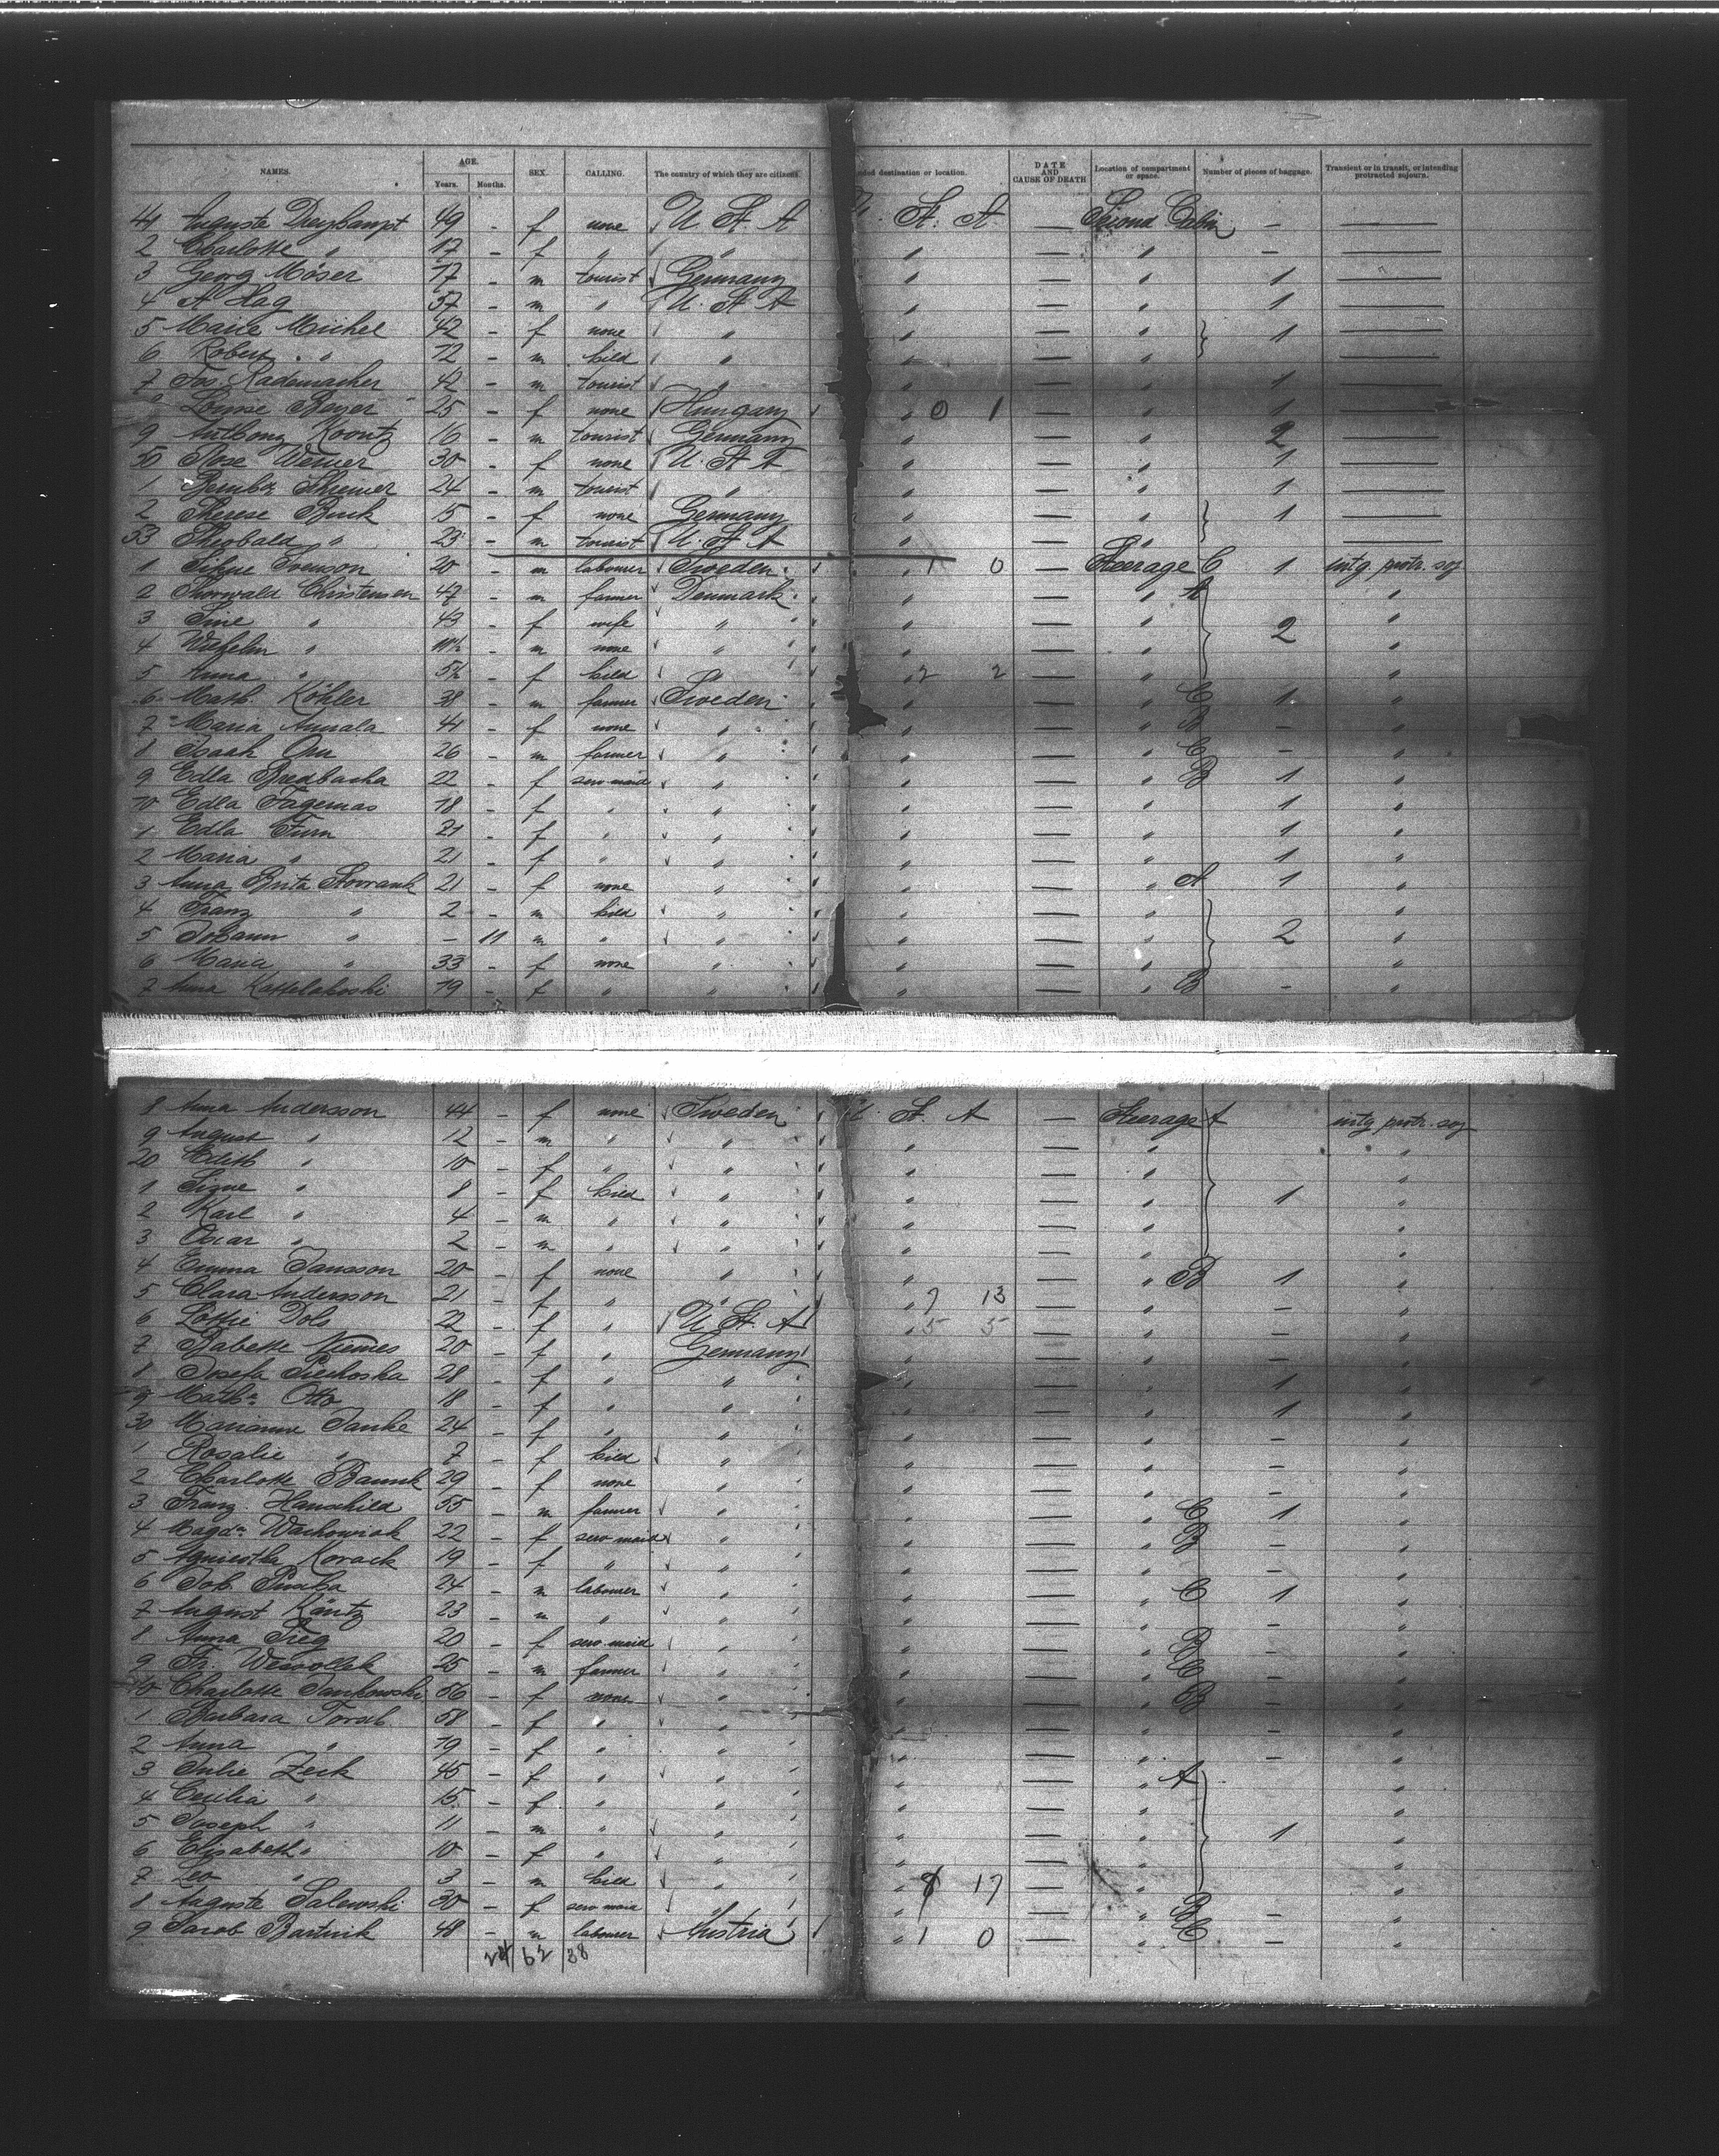 NAMES. AGE. Years. Months. SEX. CALLING. The country of which they are citizens. ded destination or location. DATE AND CAUSE OF DEATH Location of compartment or space. Number of pieces of baggage. Transient or in transit, or intending protracted sojourn.
41 Auguste 49 - f none U. St. A St. A. — Second Cabin - —
2 Charlotte " 17 - f " " " — " - —
3 Georg Möser 17 - m tourist Germany " — " 1 —
4 A Hag 57 - m " U. St. A " — " 1 —
5 Marie Michel 42 - f none " " — " 1 —
6 Robert " 12 - m child " " — " —
7 Jos. Rademacher 42 - m tourist " " — " 1 —
Louise Beyer 25 - f none Hungary " 0 1 — " 1 —
9 Anthony Koontz 16 - m tourist Germany " — " 2 —
50 Rose Werner 30 - f none U. St. A " — " 1 —
1 24 - m tourist " " — " 1 —
2 Therese Buck 15 - f none Germany " — " 1 —
53 Theobald " 23 - m tourist U. St. A " — " —
1 Svenson 20 - m labourer Sweden " 1 0 — Steerage C 1 intg protr. soj
2 Thorwald Christensen 47 - m farmer Denmark " — " A "
3 Sine " 43 - f wife " " — " 2 "
4 Wilhelm " - m none " " — " "
5 Anna " - f child " " 2 2 — " "
6 Math. Köhler 38 - m farmer Sweden " — " C 1 "
7 Maria Annala 41 - f none " " — " B - "
8 Isaak 26 - m farmer " " — " C - "
9 Edla Bredbacka 22 - f serv maid " " — " B 1 "
10 Edla Fagernas 18 - f " " " — " 1 "
1 Edla Furn 21 - f " " " — " 1 "
2 Maria " 21 - f " " " — " 1 "
3 Anna Brita Storrank 21 - f none " " — " A 1 "
4 Franz " 2 - m child " " — " "
5 Johann " - 11 m " " " — " 2 "
6 Maria " 33 - f none " " — " "
7 Anna 19 - f " " " — " B - "
8 Anna Andersson 44 - f none Sweden U. St. A — Steerage A intg protr. soj
9 August " 12 - m " " " — " "
20 Edith " 10 - f " " " — " "
1 Signe " 8 - f child " " — " 1 "
2 Karl " 4 - m " " " — " "
3 Oscar " 2 - m " " " — " "
4 Emma Jansson 20 - f none " " — " B 1 "
5 Clara Andersson 21 - f " " " 7 13 — " - "
6 Lottie Dols 22 - f " U. St. A " 5 5 — " - "
7 Babette Niemes 20 - f " Germany " — " - "
8 Josefa 28 - f " " " — " 1 "
9 Matha Otto 18 - f " " " — " 1 "
30 Marianne Janke 24 - f " " " — " - "
1 Rosalie " 7 - f child " " — " - "
2 Charlotte 29 - f none " " — " - "
3 Franz Hauschild 55 - m farmer " " — " C 1 "
4 Magda Wachowiak 22 - f serv maid " " — " B - "
5 Korack 19 - f " " " — " - "
6 Joh. 24 - m labourer " " — " C 1 "
7 August Käntz 23 - m " " " — " - "
8 Anna 20 - f serv maid " " — " B - "
9 Fr. 25 - m farmer " " — " C - "
40 Charlotte Jankowski 56 - f none " " — " B - "
1 Barbara 58 - f " " " — " - "
2 Anna " 19 - f " " " — " - "
3 Julie Zeck 45 - f " " " — " A "
4 Cecilia " 15 - f " " " — " "
5 Joseph " 11 - m " " " — " 1 "
6 Elisabeth " 10 - f " " " — " "
7 Leo " 3 - m child " " 8 17 — " "
8 Auguste Salewski 30 - f serv maid " " — " B - "
9 Jacob Bartnik 48 - m labourer Austria " 1 0 — " C - "
24 62 38